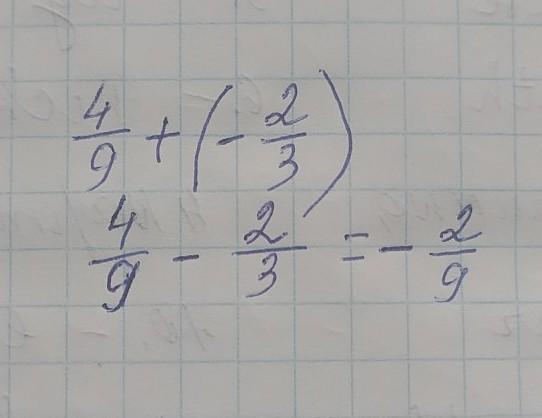 4/9 + (- 2/3)
4/9 - 2/3 = - 2/9